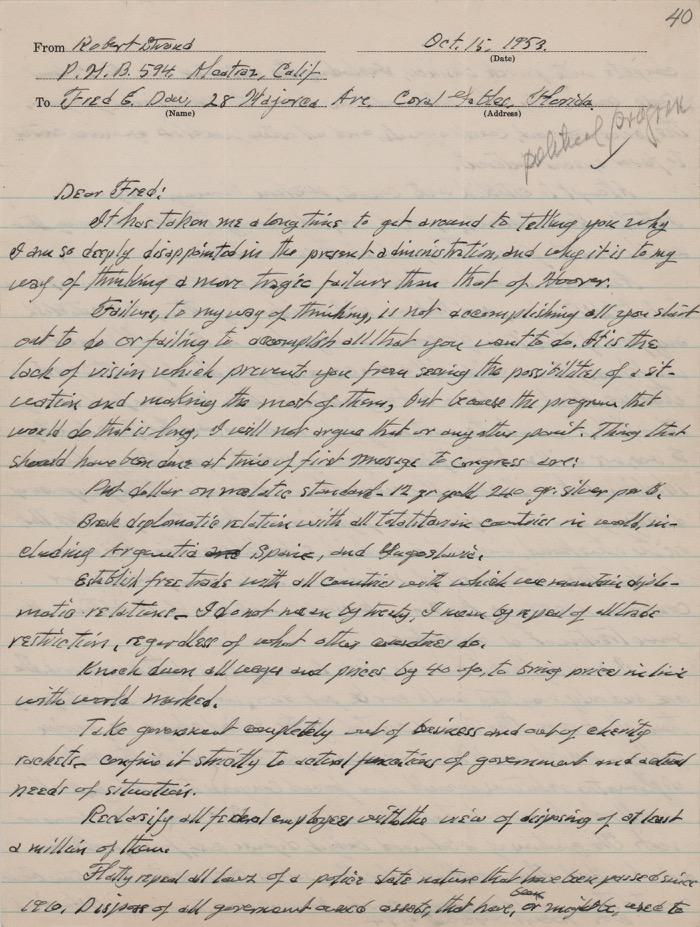 40
From Robert Stroud Oct. 15, 1953.
(Date)
P.M.B. 594, Alcatraz, Calif
To Fred E. Daw, 28 Majorca Ave. Coral Gables, Florida.
(Name) (Address)
political program
Dear Fred:
It has taken me a long time to get around to telling you why
I am so deeply disappointed in the present administration, and why it is to my
way of thinking a more tragic failure than that of Hoover.
Failure, to my way of thinking, is not accomplishing all you start
out to do or failing to accomplish all that you want to do. It is the
lack of vision which prevents you from seeing the possibilities of a sit-
uation and making the most of them, but because the program that
would do that is long, I will not argue that or any other point. Things that
should have been done at time of first message to Congress are:
Put dollar on metalic standard - 12 gr gold, 240 gr. silver per $.
Break diplomatic relation with all totalitarian countries in world, in-
cluding Argentia and Spain, and Yugoslavia.
Establish free trade with all countries with which we maintain diplo-
matic relations - I do not mean by treaty, I mean by repeal of all trade
restriction, regardless of what other countries do.
Knock down all wages and prices by 40 %, to bring price in line
with world market.
Take government completely out of business and out of charity
rackets - confine it strictly to actual functions of government and actual
needs of situation.
Reclasify all federal employees with the view of disposing of at least
a million of them.
Flatly repeal all laws of a police state nature that have been passed since
1910. Dispose of all government owned assets, that have, been or might be, used to